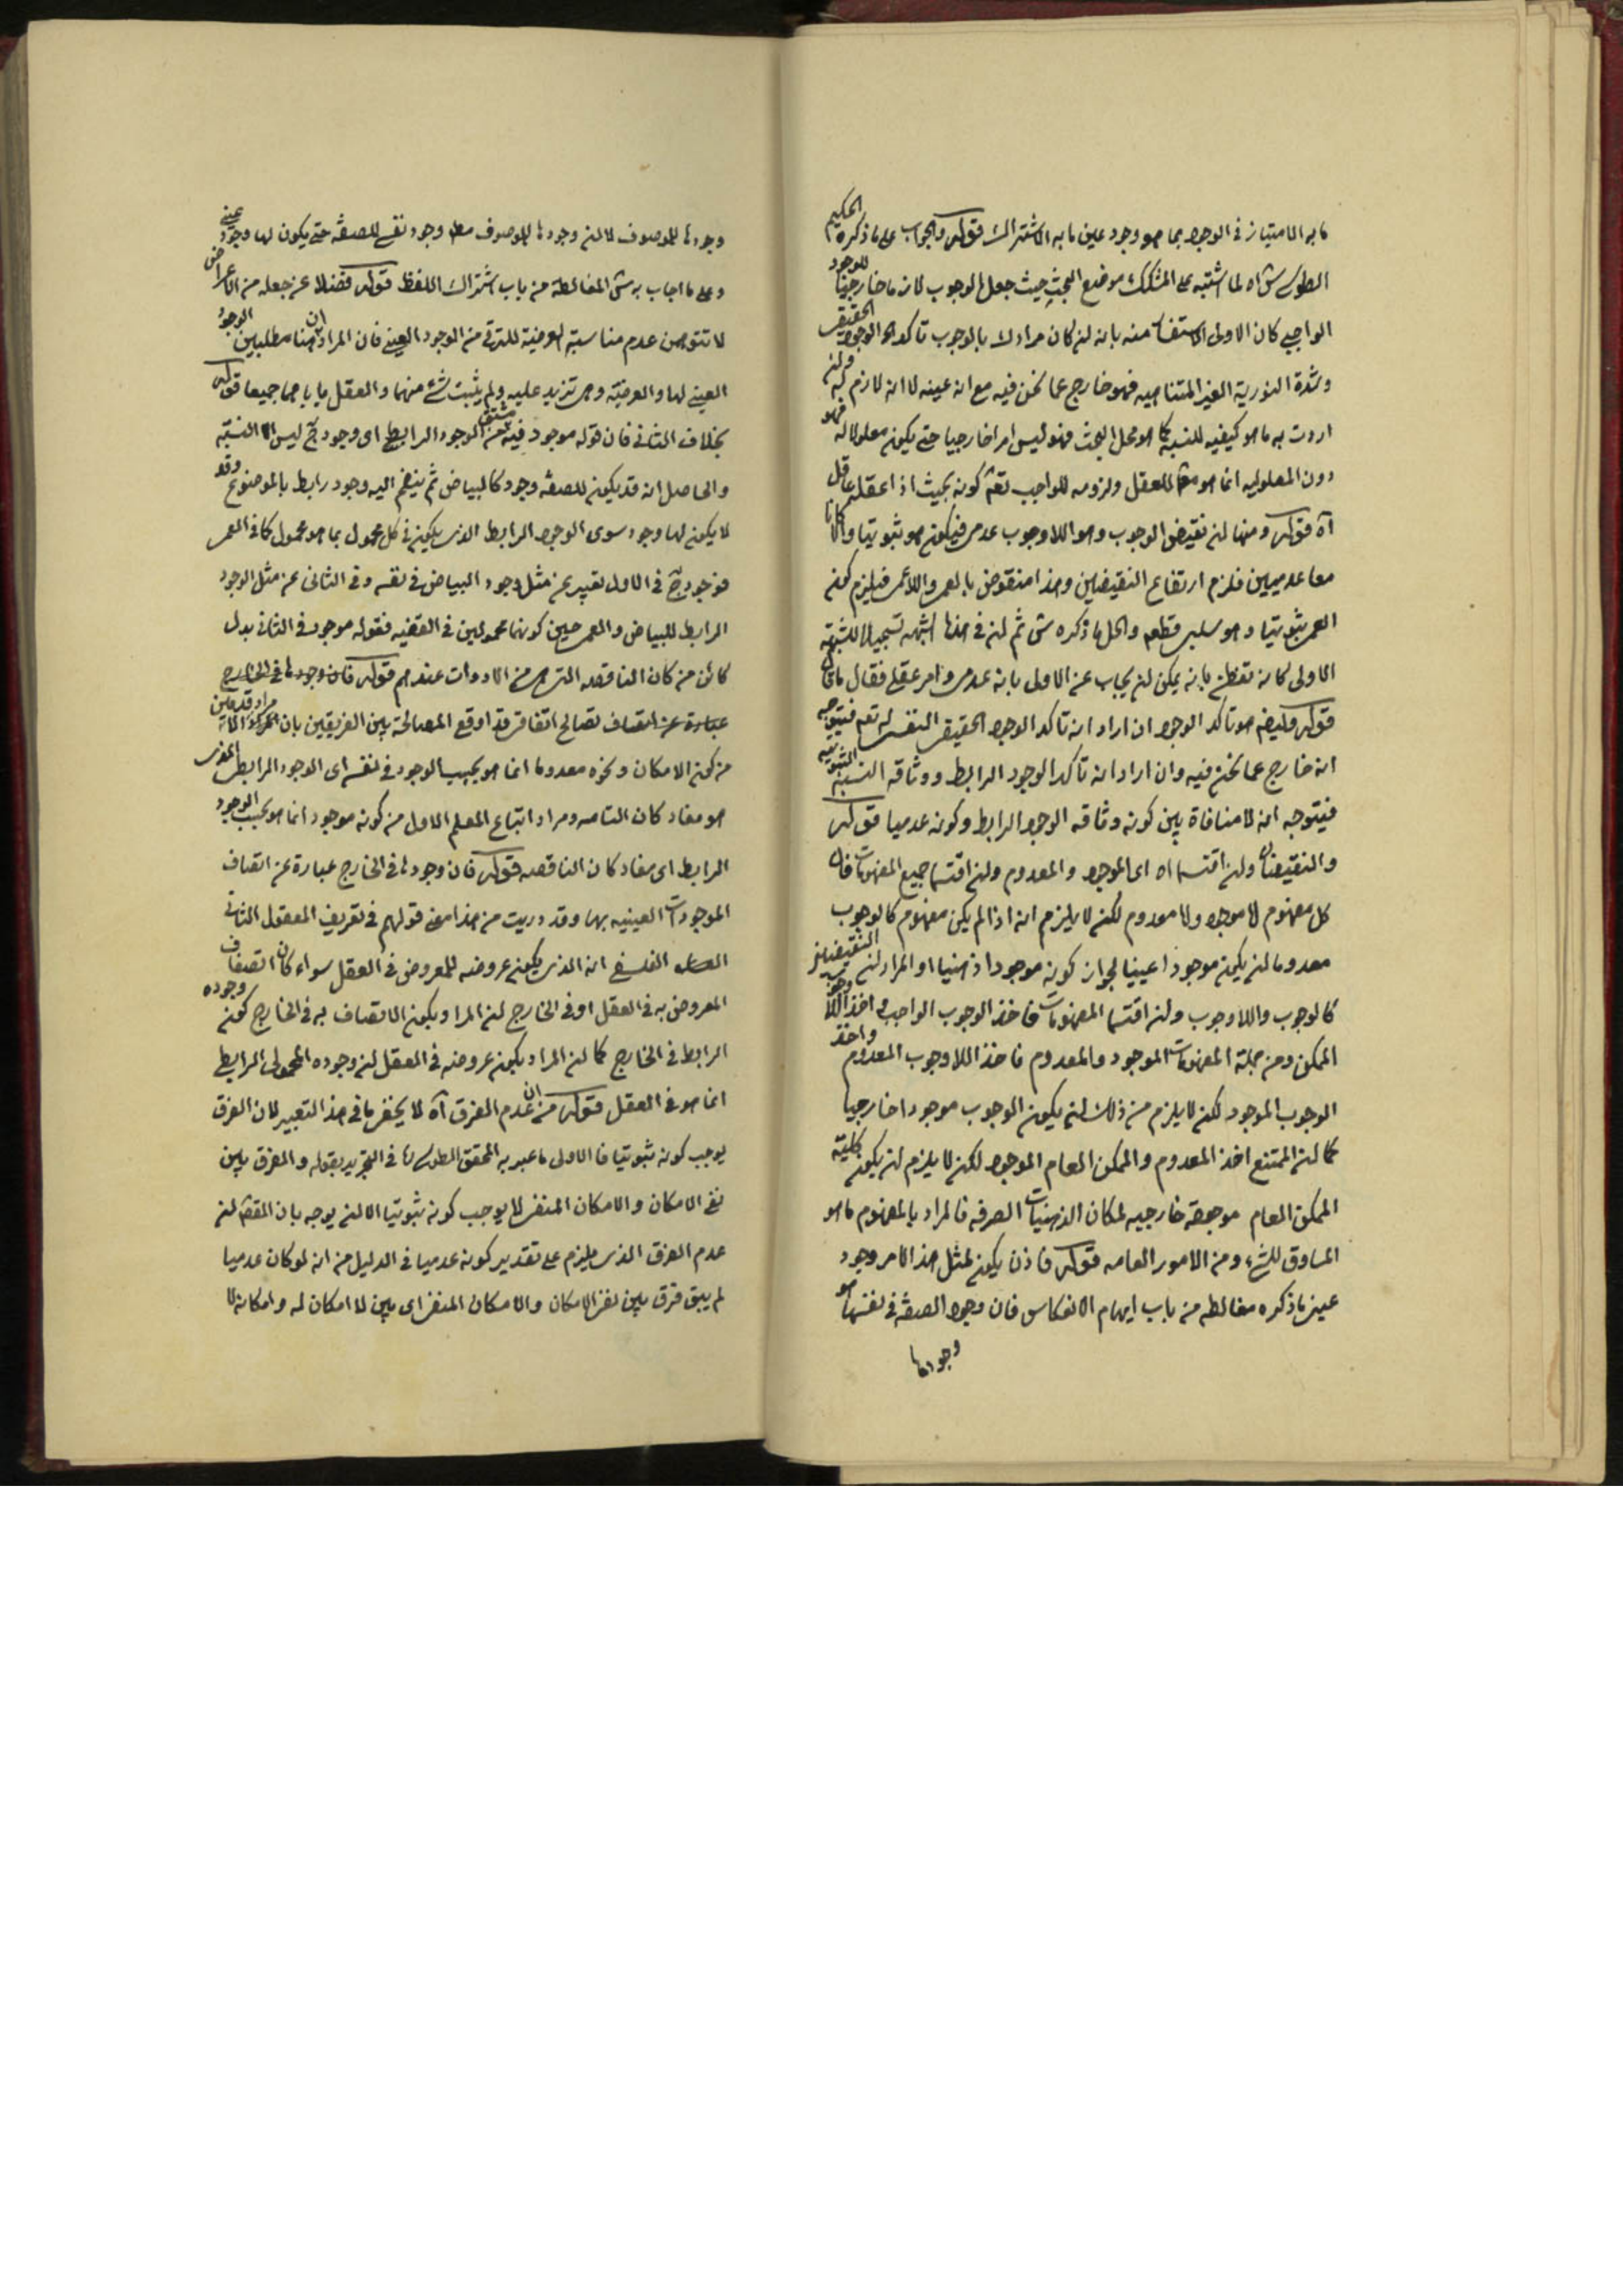 ما به الامتياز فى الوجود بما هو وجود عين ما به الاشتراك قوله والجواب على ما ذكره الحكيم
الطوسى اه لما اشتبه على المشكك موضع البحث حيث جعل الوجوب لازما خارجيا للوجود
الواجبى كان الاولى الاستفسار منه بانه ان كان مرادك بالوجوب تاكد الوجود الحقيقى
وشدة النورية الغير المتناهيه فهو خارج عما نحن فيه مع انه عينه لا انه لازم له وان
اردت به ما هو كيفيه للنسبة كما هو محل البحث فهو ليس امرا خارجيا حتى يكون معلولا له فهو
دون المعلوليه انما هو فى العقل ولزومه للواجب كونه بحيث اذا عقله عاقل
آه قوله ومنها ان نقيض الوجوب وهو اللاوجوب عدمى فيكون هو ثبوتيا والا كانا
معا عدميين فلزم ارتفاع النقيضين وهذا منقوض بالعمى واللاعمى فيلزم كون
العمى ثبوتيا وهو سلبى قطعا والحل ما ذكره ثم ان فى هذا الشبهه تسجيلا للشبهة
الاولى كانه تفطن بانه يمكن ان يجاب عن الاولى بانه عدمى وامر عقلى فقال ما قال
قوله وايضا هو تاكد الوجود ان اراد انه تاكد الوجود الحقيقى النفسى فيتوجه
انه خارج عما نحن فيه وان اراد انه تاكد الوجود الرابط ووثاقه النسبة الثبوتيه
فيتوجه انه لا منافاة بين كونه وثاقه الوجود الرابط وكونه عدميا قوله
والنقيضان وان اقتسما اه اى الموجود والمعدوم وان اقتسما جميع المفهومات فان
كل مفهوم اما موجود واما معدوم لكن لا يلزم انه اذا لم يكن مفهوم كالوجوب
معدوما ان يكون موجودا عينيا لجواز كونه موجودا ذهنيا او المراد ان النقيضين
كالوجوب واللاوجوب وان اقتسما المفهومات فاخذ الوجوب الواجب واخذ اللاوجوب
الممكن ومن جملة المفهومات الموجود والمعدوم فاخذ اللاوجوب المعدوم واخذ
الوجوب الموجود لكن لا يلزم من ذلك ان يكون الوجوب موجودا خارجيا
كما ان الممتنع اخذ المعدوم والممكن العام الموجود لكن لا يلزم ان يكون كلية
الممكن العام موجودة خارجيه لمكان الذهنيات الصرفه فالمراد بالمفهوم ما هو
المساوق للشىء ومن الامور العامه قوله فاذن يكون لمثل هذا الامر وجود
عينى ما ذكره مغالطه من باب ايهام الانعكاس فان وجود الصفة فى نفسها هو
وجودها
وجودها للموصوف لا ان وجودها للموصوف مط وجود نفسى للصفة حتى يكون لها وجود عينى
وعلى ما اجاب به المغالطة من باب اشتراك اللفظ قوله فضلا عن جعله من الاعراض
لا تتوهمن عدم مناسبة العرضية للترقى من الوجود العينى فان المراد ان هنا مطلبين الوجود
العينى لها والعرضية وهى تزيد عليه ولم يثبت شىء منهما والعقل ياباهما جميعا قوله
بخلاف الثانى فان قوله موجود فيه مشتق من الوجود الرابطى اى وجود ليس الا النسبة
والحاصل انه قد يكون للصفة وجود كالبياض ثم ينضم اليه وجود رابط بالموضوع وقد
لا يكون لها وجود سوى الوجود الرابط الذى يكون فى كل محمول بما هو محمول كما فى العمى
فوجود فى الاول تعبير عن مثل وجود البياض فى نفسه وفى الثانى عن مثل الوجود
الرابط للبياض والعمى حين كونهما محمولين فى القضيه فقوله موجود فى الثانى بدل
كائن من كان الناقصه التى هى من الادوات عندهم قوله فان وجودها فى الخارج
عبارة عن اتصاف تصالح اتفاقى قد اوقع المصالحة بين الفريقين بان مراد قدمائين
من كون الامكان ونحوه معدوما انما هو بحسب الوجود فى نفسه اى الوجود الرابطى الذى
هو مفاد كان التامه ومراد اتباع المعلم الاول من كونه موجودا انما هو بحسب الوجود
الرابط اى مفاد كان الناقصه قوله فان وجودها فى الخارج عبارة عن اتصاف
الموجودات العينيه بها وقد دريت من هذا معنى قولهم فى تعريف المعقول الثانى
الفلسفى انه الذى يكون عروضه للمعروض فى العقل سواء كان اتصاف
المعروض به فى العقل او فى الخارج ان المراد بكون الاتصاف به فى الخارج كون وجوده
الرابط فى الخارج كما ان المراد بكون عروضه فى العقل ان وجوده المحمولى الرابطى
انما هو فى العقل قوله من ان عدم الفرق آه لا يخفى ما فى هذا التعبير لان الفرق
يوجب كونه ثبوتيا فالاولى ما عبر به المحقق الطوسى فى التجريد بقوله والفرق بين
نفى الامكان والامكان المنفى لا يوجب كونه ثبوتيا الا ان يوجه بان المقصود ان
عدم الفرق الذى يلزم على تقدير كونه عدميا فى الدليل من انه لو كان عدميا
لم يبق فرق بين نفى الامكان والامكان المنفى اى بين لا امكان له وامكانه لا